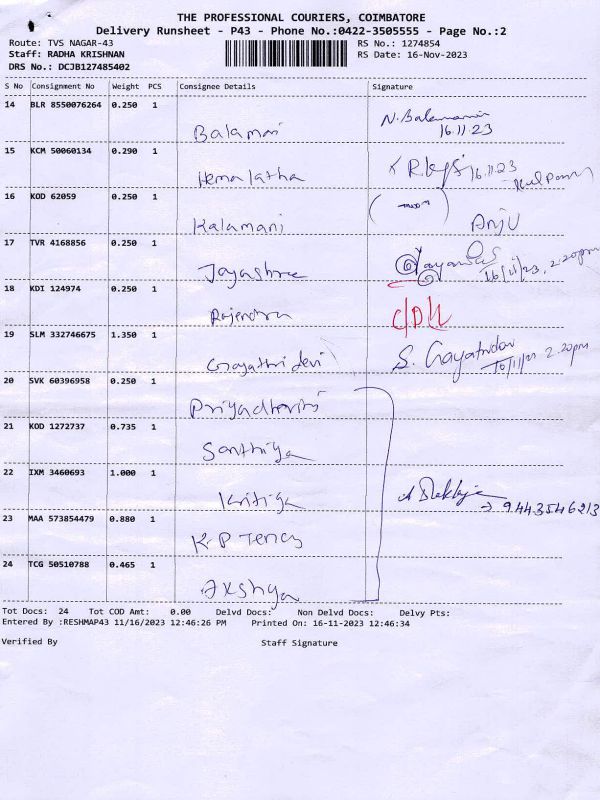 THE PROFESSIONAL COURIERS, COIMBATORE
Delivery Runsheet - P43 - Phone No.:0422-3505555 - Page No.:2
Route: TVS NAGAR-43
RS No.: 1274854
Staff: RADHA KRISHNAN
RS Date: 16-Nov-2023
DRS No.: DCJB127485402
S No Consignment No Weight PCS Consignee Details Signature
14 BLR 8550076264 0.250 1
Balamani N. Balamani
16.11.23
15 KCM 50060134 0.290 1
Hemalatha 16.11.23
16 KOD 62059 0.250 1
Kalamani Anju
17 TVR 4168856 0.250 1
Jayashree 16/11/23, 2.20pm
18 KDI 124974 0.250 1
Rajendra
19 SLM 332746675 1.350 1
Gayathri devi S. Gayatri 2.20pm
20 SVK 60396958 0.250 1
Priyadharini
21 KOD 1272737 0.735 1
Santhiya
22 IXM 3460693 1.000 1
Kritiga
→ 9443546213
23 MAA 573854479 0.880 1
K.P
24 TCG 50510788 0.465 1
Axshya
Tot Docs: 24 Tot COD Amt: 0.00 Delvd Docs: Non Delvd Docs: Delvy Pts:
Entered By :RESHMAP43 11/16/2023 12:46:26 PM Printed On: 16-11-2023 12:46:34
Verified By Staff Signature